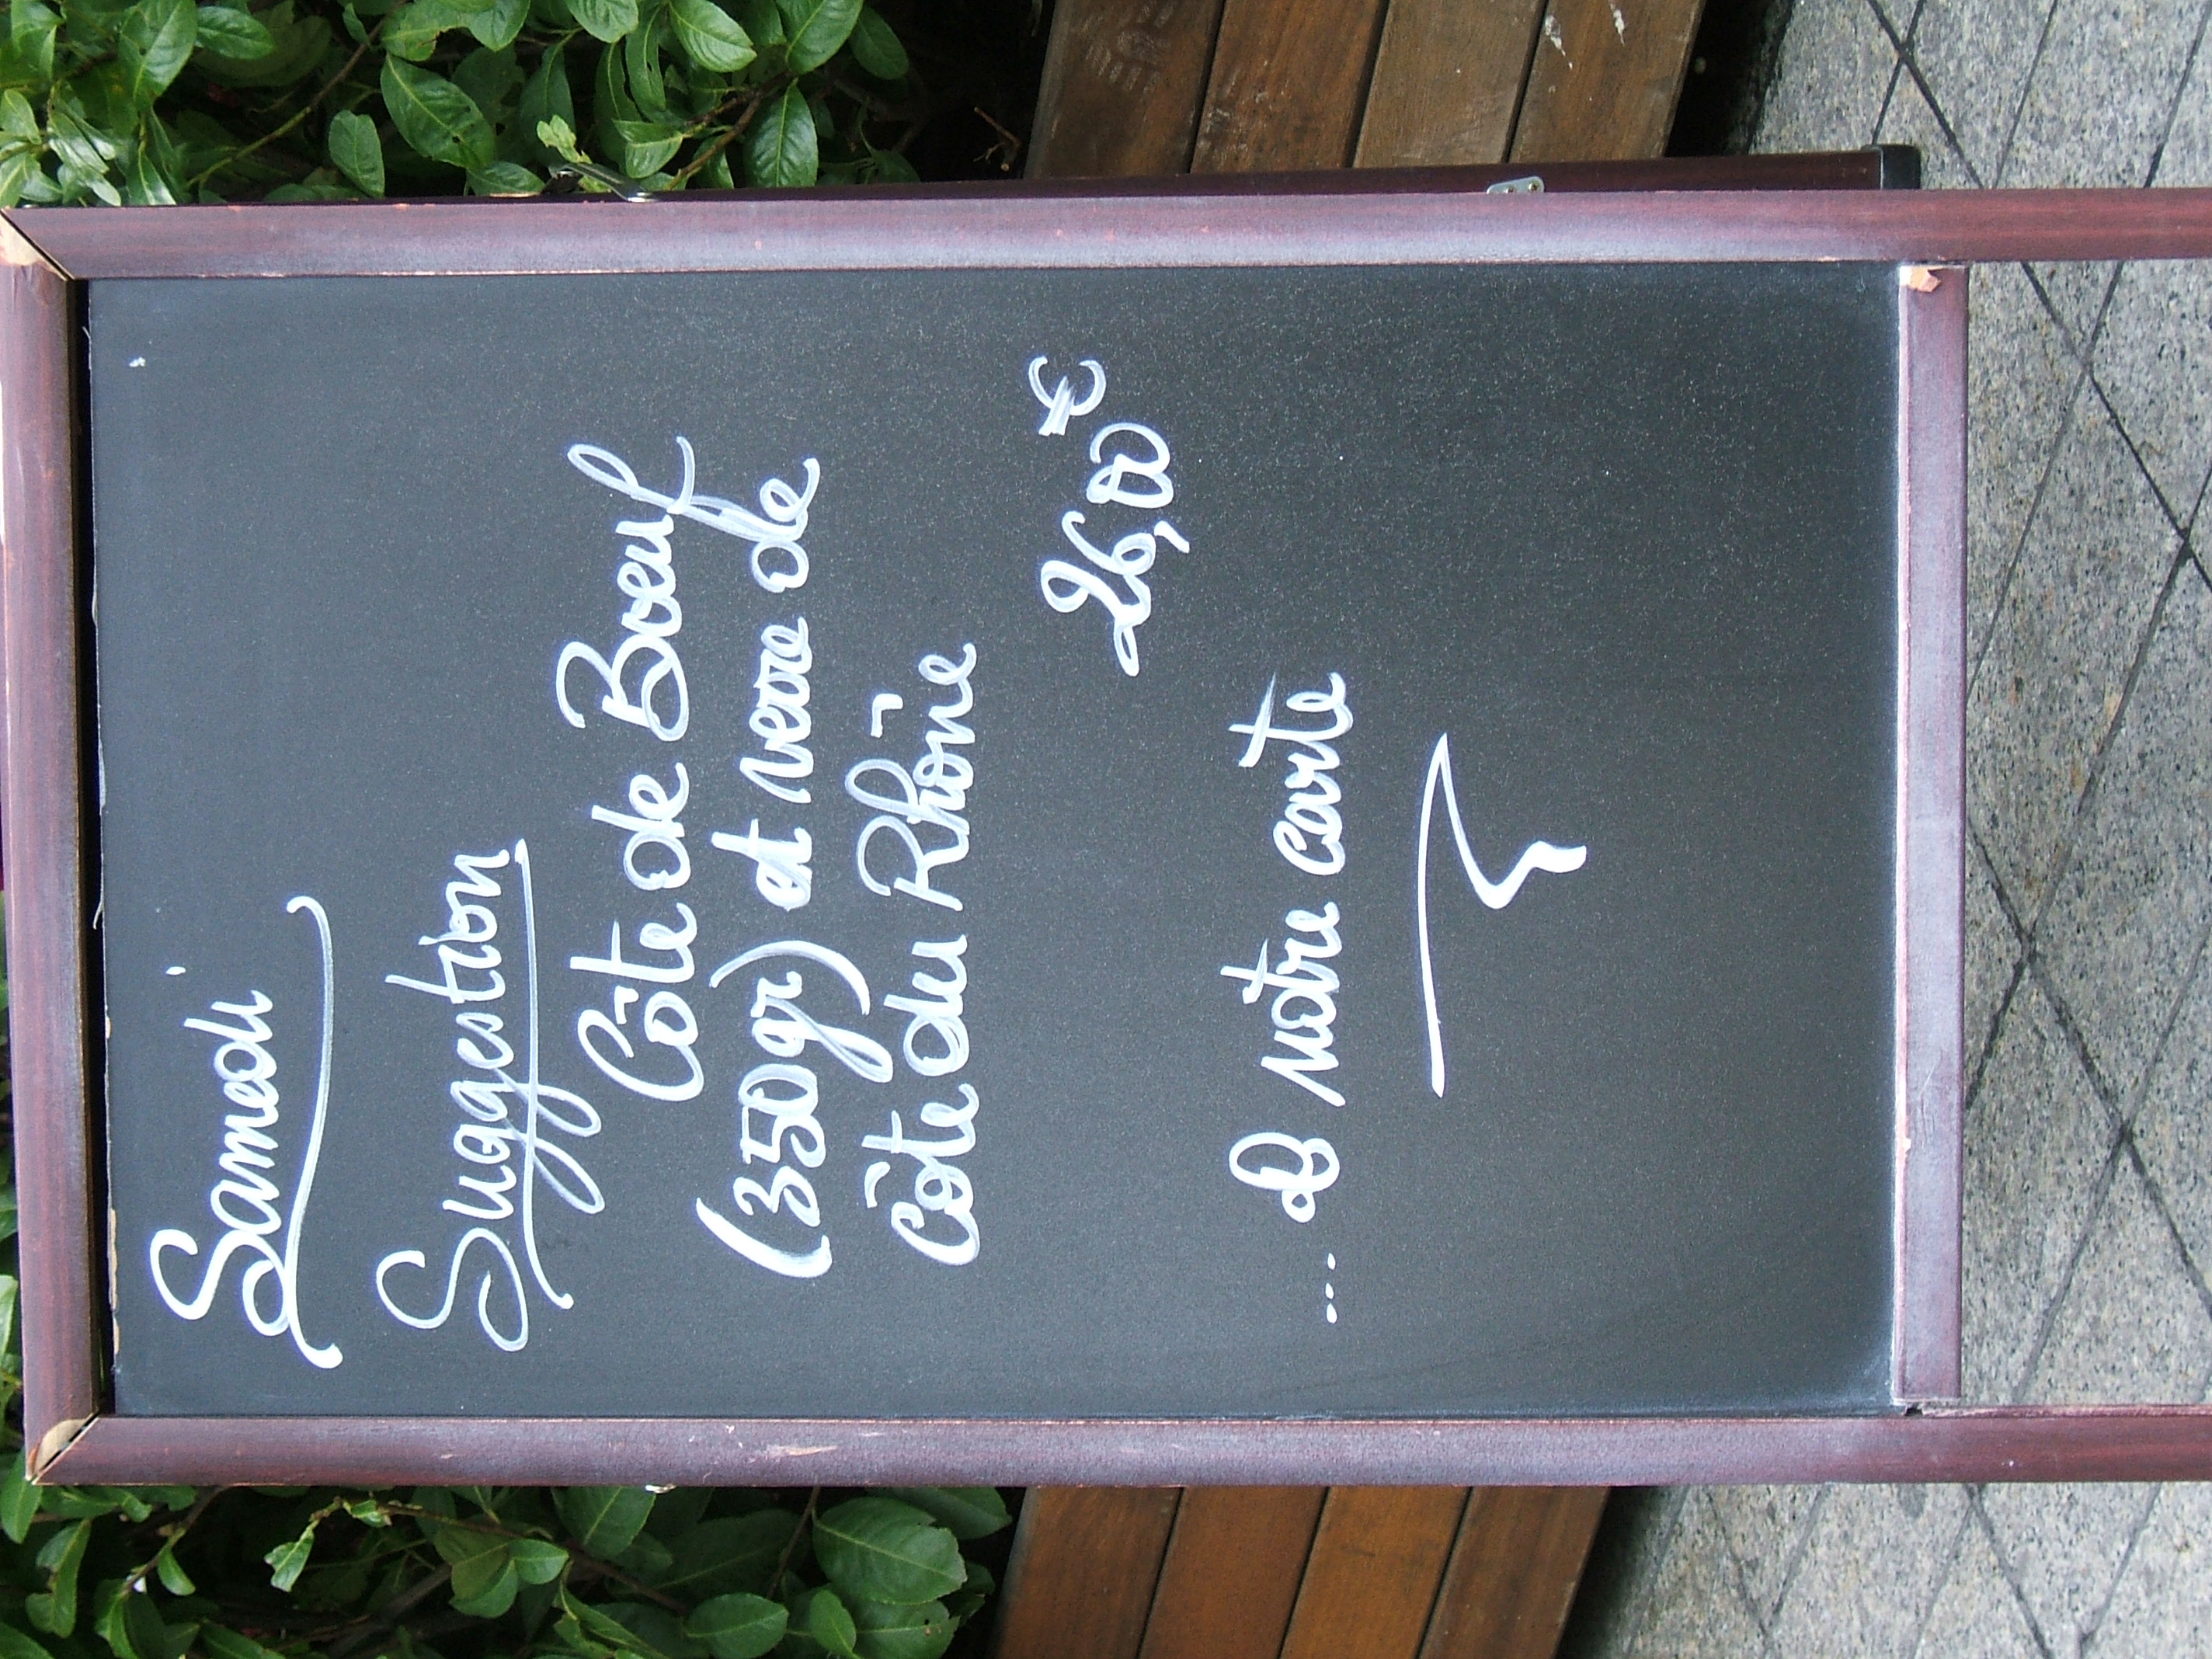 Samedi
Suggestion
Côte de Boeuf
(350gr) et verre de
Côte du Rhône
26,00 €
... & notre carte